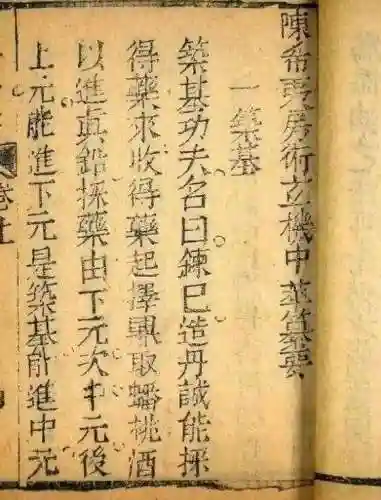 陳希夷房術玄機中萃纂要
一築基
築基功夫名曰鍊己造丹誠能採
得藥求收得藥起擇鼎取蟠桃酒
以進真鉛採藥由下元次中元後
上元能進下元是築基能進中元